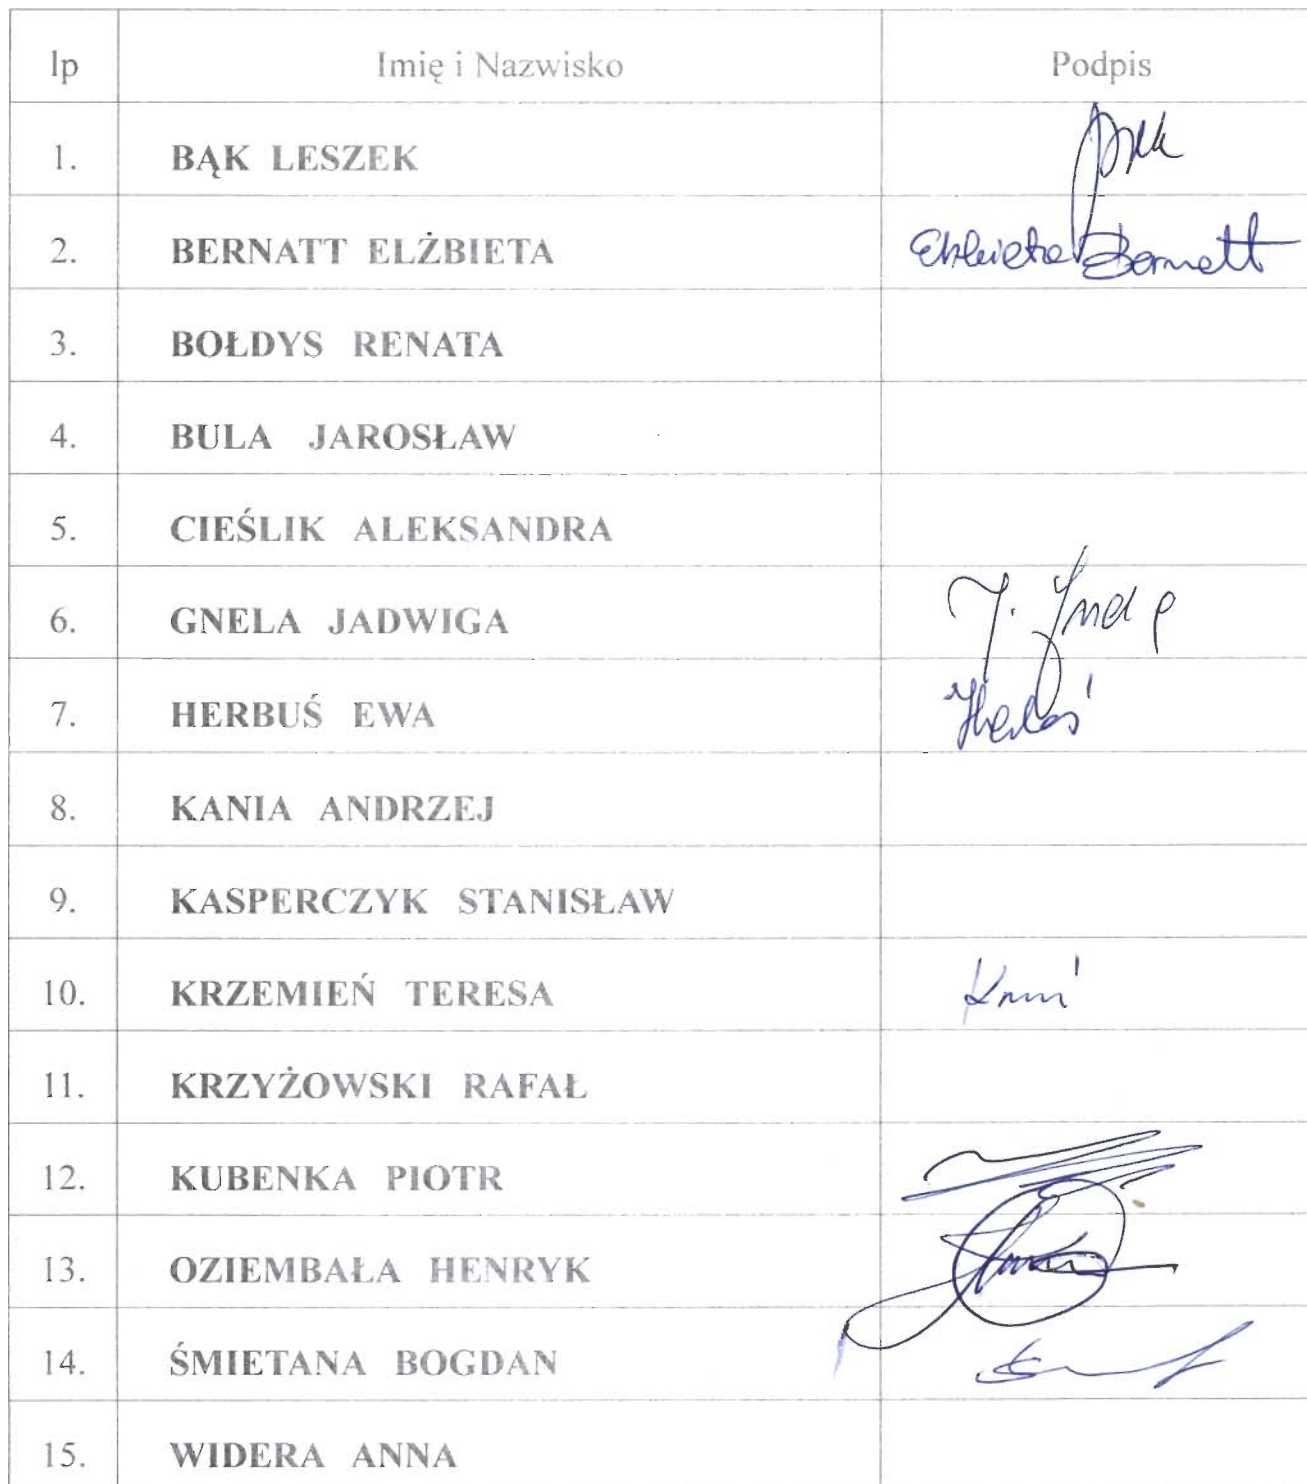 lp Imię i Nazwisko Podpis
1. BĄK LESZEK
2. BERNATT ELŻBIETA Elżbieta Bernatt
3. BOŁDYS RENATA
4. BULA JAROSŁAW
5. CIEŚLIK ALEKSANDRA
6. GNELA JADWIGA J.
7. HERBUŚ EWA
8. KANIA ANDRZEJ
9. KASPERCZYK STANISŁAW
10. KRZEMIEŃ TERESA
11. KRZYŻOWSKI RAFAŁ
12. KUBENKA PIOTR
13. OZIEMBAŁA HENRYK
14. ŚMIETANA BOGDAN
15. WIDERA ANNA